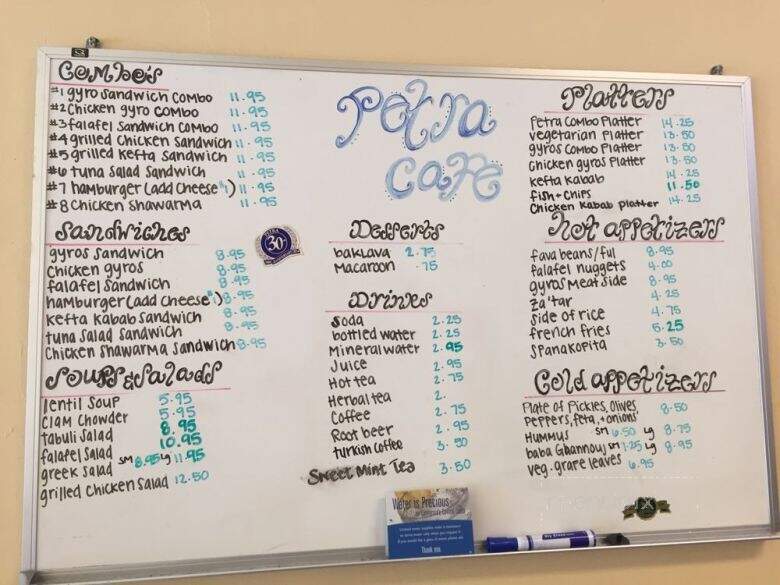 Combo's
#1 gyro sandwich combo 11.95
#2 Chicken gyro combo 11.95
#3 falafel sandwich combo 11.95
#4 grilled Chicken sandwich 11.95
#5 grilled Kefta sandwich 11.95
#6 tuna Salad Sandwich 11.95
#7 hamburger (add Cheese $1) 11.95
#8 Chicken Shawarma 11.95
Sandwiches
gyros sandwich 8.95
Chicken gyros 8.95
falafel sandwich 8.95
hamburger (add Cheese $1) 8.95
Kefta Kabab sandwich 8.95
tuna Salad Sandwich 8.95
Chicken Shawarma Sandwich 8.95
Soups & Salads
lentil Soup 5.95
Clam Chowder 5.95
tabuli Salad 8.95
falafel Salad 10.95
greek Salad SM 8.95 Lg 11.95
grilled Chicken Salad 12.50
Petra
Cafe
30
Desserts
baklava 2.75
Macaroon .75
Drinks
Soda 2.25
bottled water 2.25
Mineral water 2.95
Juice 2.95
Hot tea 2.75
Herbal tea 2.
Coffee 2.75
Root beer 2.95
turkish Coffee 3.50
Sweet Mint Tea 3.50
Platters
Petra Combo Platter 14.25
vegetarian Platter 13.50
gyros Combo Platter 13.50
Chicken gyros Platter 13.50
Kefta Kabab 14.25
fish + Chips 11.50
Chicken Kabab platter 14.25
Hot appetizers
fava beans/ful 8.95
falafel nuggets 4.00
gyros Meat Side 8.95
Za'tar 4.25
side of rice 4.75
french fries 5.25
Spanakopita 3.50
Cold appetizers
Plate of Pickles, Olives,
Peppers, feta, + onions 8.50
Hummus SM 6.50 Lg 8.75
baba Ghannouj SM 7.25 Lg 8.95
veg. grape leaves 6.95
Water is Precious
Thank you